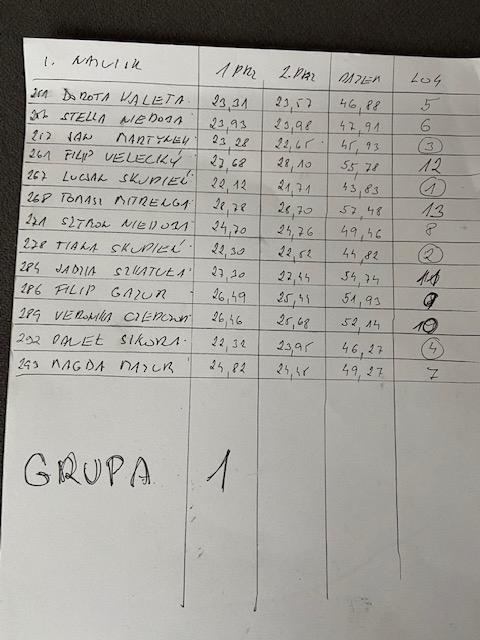 I. NAZWISK 1 PRZ 2. PRZ RAZEM LOG
261 DOROTA KALETA 23,31 23,57 46,88 5
STELLA NIEDOBA 23,93 23,98 47,91 6
JAN 23,28 22,65 45,93 3
261 FILIP VELECKÝ 27,68 28,10 55,78 12
267 LUCJAN SKUPIEŃ 22,12 21,71 43,83 1
268 TOMASZ MITRENGA 28,78 28,70 57,48 13
271 SZYMON NIEDOBA 24,70 24,76 49,46 8
278 TIANA SKUPIEŃ 22,30 22,52 44,82 2
284 27,30 27,44 54,74 11
286 FILIP GAZUR 26,49 25,44 51,93 9
289 VERONIKA 26,46 25,68 52,14 10
292 PAWEŁ SIKORA 22,32 23,95 46,27 4
293 MAGDA MAZUR 24,82 24,45 49,27 7
GRUPA 1